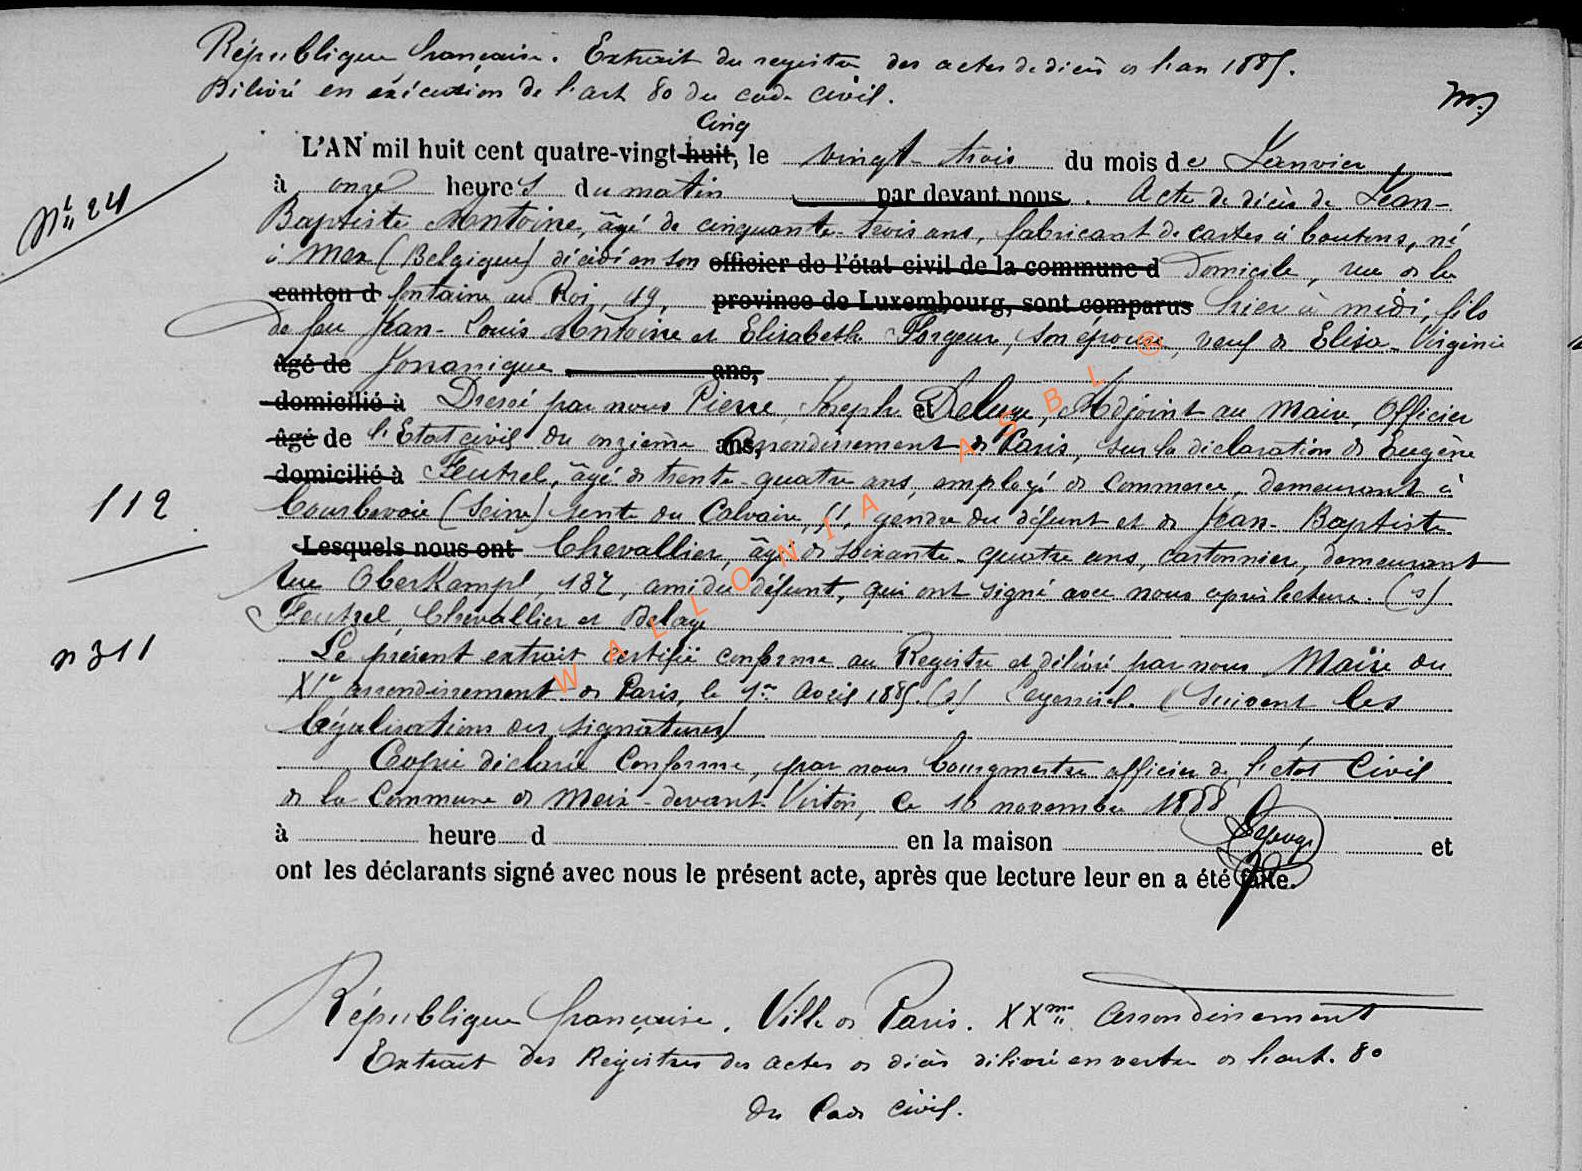 République française. Extrait du registre des actes de décès de l'an 1885.
Délivré en exécution de l'art 80 du code civil.
Cinq
L'AN mil huit cent quatre-vingt-huit, le vingt-trois du mois de Janvier
à onze heures du matin par devant nous. Acte de décès de Jean-
N° 24
Baptiste Antoine, âgé de cinquante-trois ans, fabricant de cartes à boutons, né
à Meix (Belgique) décédé en son officier de l'état civil de la commune d domicile, rue de la
canton d fontaine au Roi, 49, province de Luxembourg, sont comparus hier à midi, fils
de feu Jean-Louis Antoine et Elisabeth Forgeur, son épouse, veuf de Elisa-Virginie
âgé de ans,
domicilié à Dressé par nous Pierre Joseph et Delage, Adjoint au Maire, Officier
âgé de l'Etat civil du onzième ans, arrondissement de Paris, sur la déclaration de Eugène
domicilié à Feutrel, âgé de trente-quatre ans, employé de commerce, demeurant à
112
Courbevoie (Seine) sente du Calvaire, gendre du défunt et de Jean-Baptiste
Lesquels nous ont Chevallier, âgé de soixante-quatre ans, cartonnier, demeurant
rue Oberkampf, 137, ami du défunt, qui ont signé avec nous après lecture. (s)
Feutrel, Chevallier et Delage
n 311
Le présent extrait certifié conforme au Registre et délivré par nous, Maire du
XIe arrondissement de Paris, le 1er Avril 1885. (s) (Suivent les
légalisations des signatures)
Copie déclarée conforme, par nous bourgmestre officier de l'état Civil
de la commune de Meix-devant-Virton, ce 10 novembre 1888
à heure d en la maison et
ont les déclarants signé avec nous le présent acte, après que lecture leur en a été faite.
République française. Ville de Paris. XXme arrondissement
Extrait des Registres des actes de décès délivré en vertu de l'art. 80
du Code civil.
WALLONIA ASBL ®